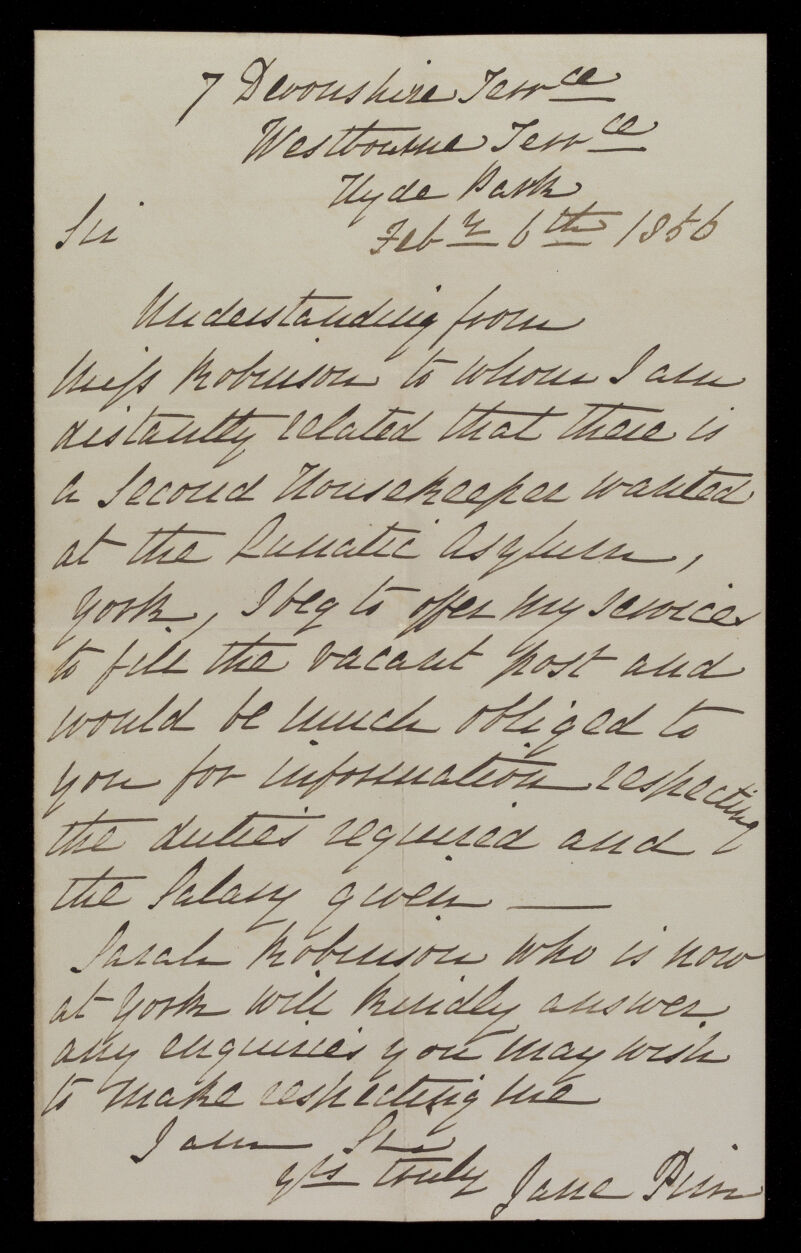 7 Devonshire Terrce
Westbourne Terrce
Hyde Park
Sir Feby 6th 1856
Understanding from
Miss Robinson to whom I am
distantly related that there is
a Second Housekeeper wanted
at the Lunatic Asylum,
York, I beg to offer my services
to fill the vacant post and
would be much obliged to
you for information respecting
the duties required and
the Salary given —
Sarah Robinson who is now
at York will kindly answer
any enquiries you may wish
to make respecting me
I am Sir
yrs truly Jane